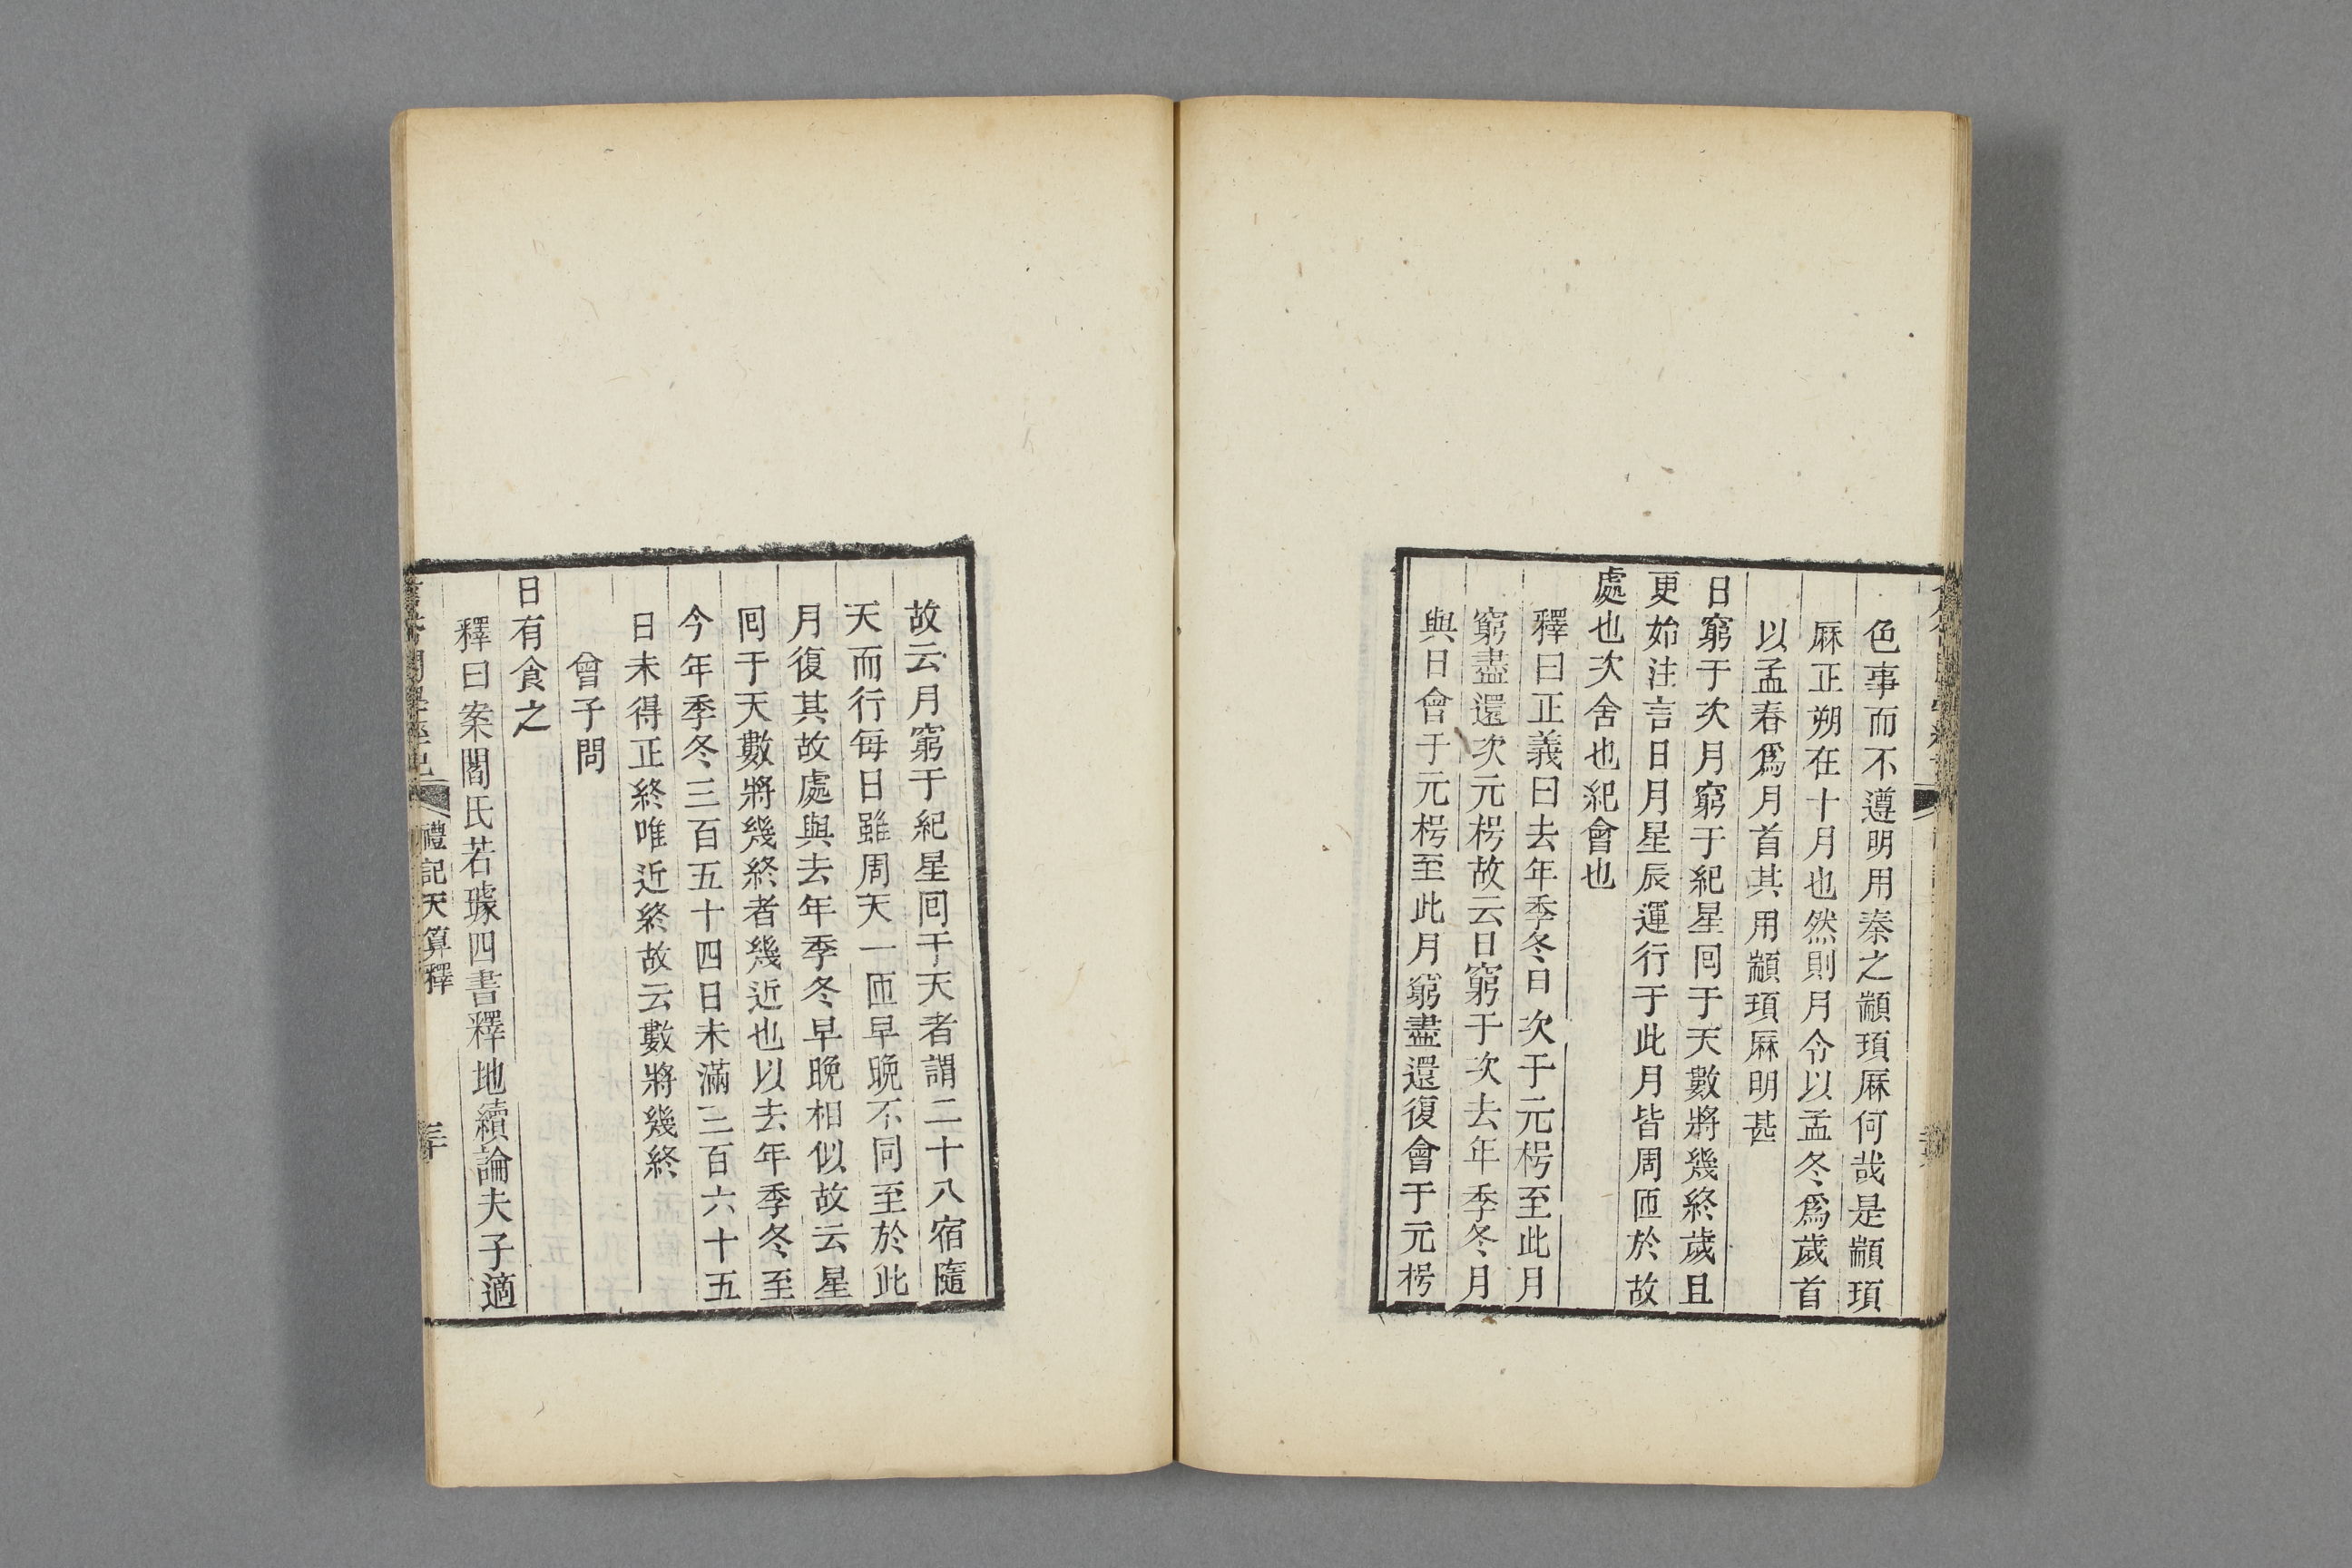 色事而不遵明用秦之顓頊厤何哉是顓頊
厤正朔在十月也然則月令以孟冬爲歲首
以孟春爲月首其用顓頊厤明甚
日窮于次月窮于紀星囘于天數將幾終歲且
更始注言日月星辰運行于此月皆周匝於故
處也次舍也紀會也
釋曰正義曰去年季冬日次于元枵至此月
窮盡還次元枵故云日窮于次去年季冬月
與日會于元枵至此月窮盡還復會于元枵
故云月窮于紀星囘于天者謂二十八宿隨
天而行每日雖周天一匝早晚不同至於此
月復其故處與去年季冬早晚相似故云星
囘于天數將幾終者幾近也以去年季冬至
今年季冬三百五十四日未滿三百六十五
日未得正終唯近終故云數將幾終
曾子問
日有食之
釋曰案閻氏若璩四書釋地續論夫子適
禮記天算釋
三十